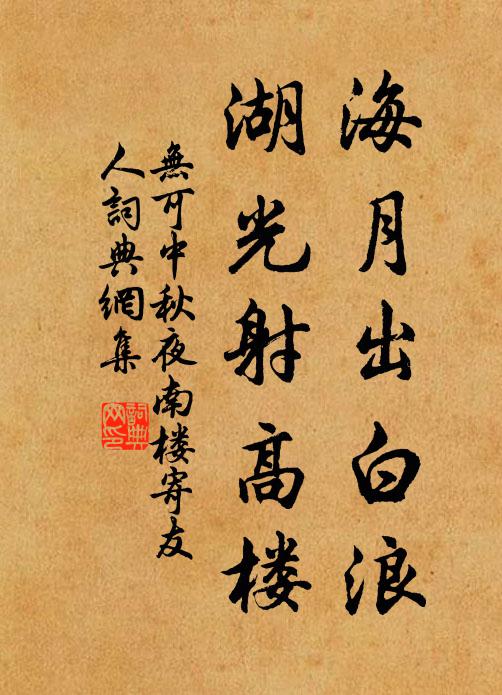 海月出白浪
湖光射高楼
無可中秋夜南楼寄友
人詞典網集
詞典
网印